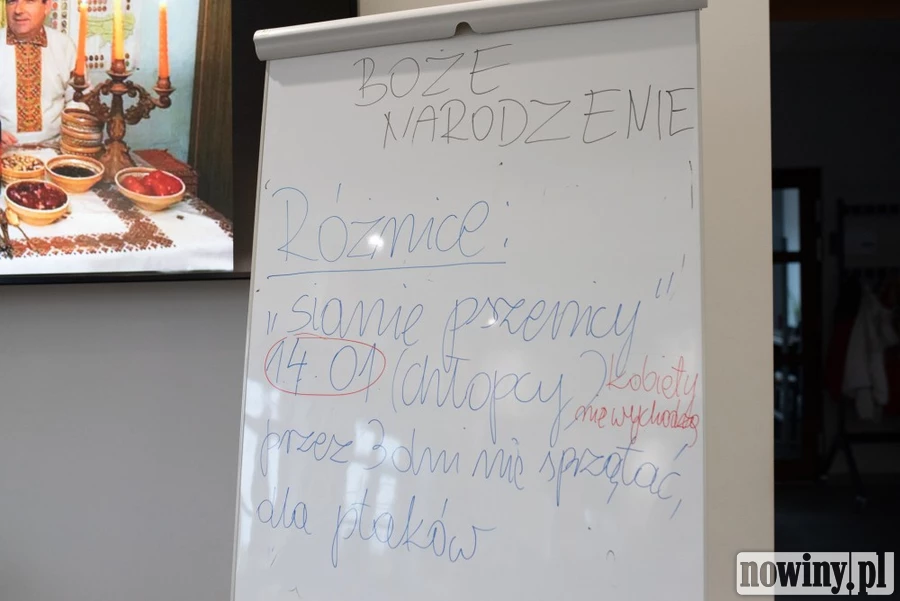 BOŻE
NARODZENIE
Różnice:
"sianie pszenicy"
14.01 (chłopcy) kobiety
nie wychodzą
przez 3 dni nie sprzątać,
dla ptaków
nowiny.pl